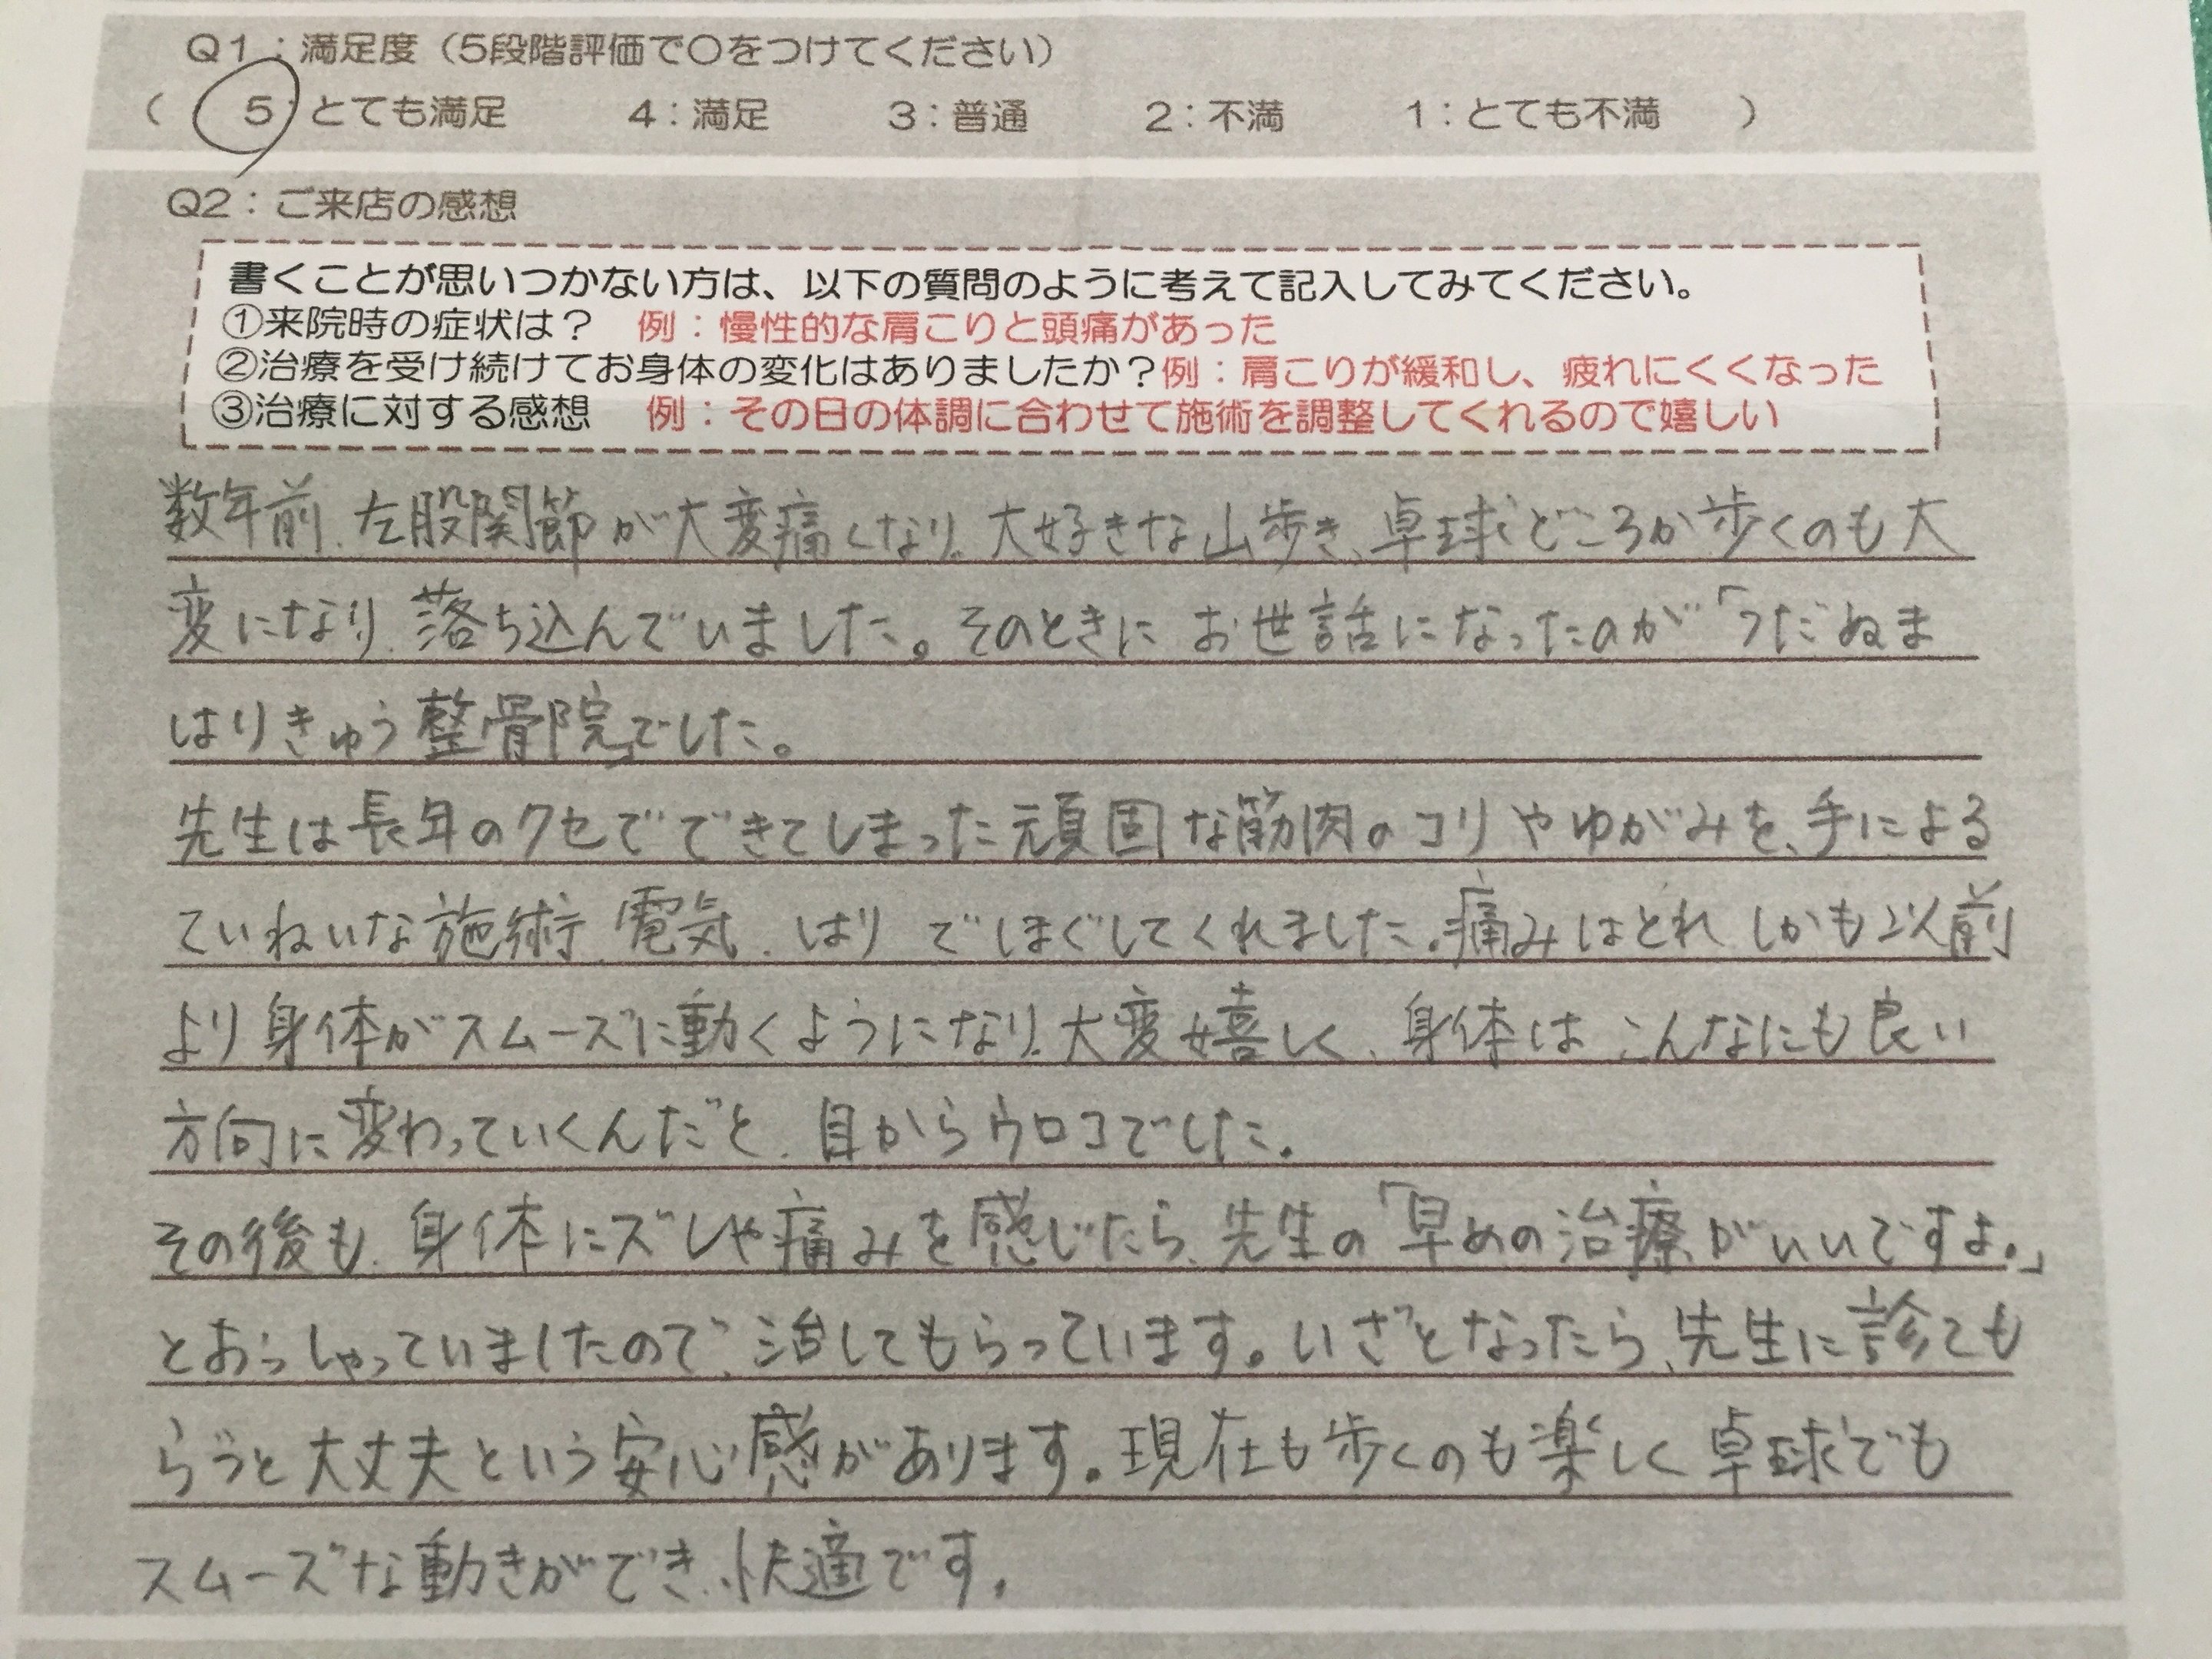 Q1：満足度（5段階評価で○をつけてください）
（ 5：とても満足 4：満足 3：普通 2：不満 1：とても不満 ）
Q2：ご来店の感想
書くことが思いつかない方は、以下の質問のように考えて記入してみてください。
①来院時の症状は？ 例：慢性的な肩こりと頭痛があった
②治療を受け続けてお身体の変化はありましたか？例：肩こりが緩和し、疲れにくくなった
③治療に対する感想 例：その日の体調に合わせて施術を調整してくれるので嬉しい
数年前、左股関節が大変痛くなり、大好きな山歩き、卓球どころか歩くのも大
変になり、落ち込んでいました。そのときにお世話になったのが「つだぬま
はりきゅう整骨院」でした。
先生は長年のクセでできてしまった頑固な筋肉のコリやゆがみを、手による
ていねいな施術、電気、はりでほぐしてくれました。痛みはとれ しかも以前
より身体がスムーズに動くようになり、大変嬉しく、身体はこんなにも良い
方向に変わっていくんだと、目からウロコでした。
その後も、身体にズレや痛みを感じたら、先生の「早めの治療がいいですよ。」
とおっしゃっていましたので、治してもらっています。いざとなったら、先生に診ても
らうと大丈夫という安心感があります。現在も歩くのも楽しく卓球でも
スムーズな動きができ、快適です。